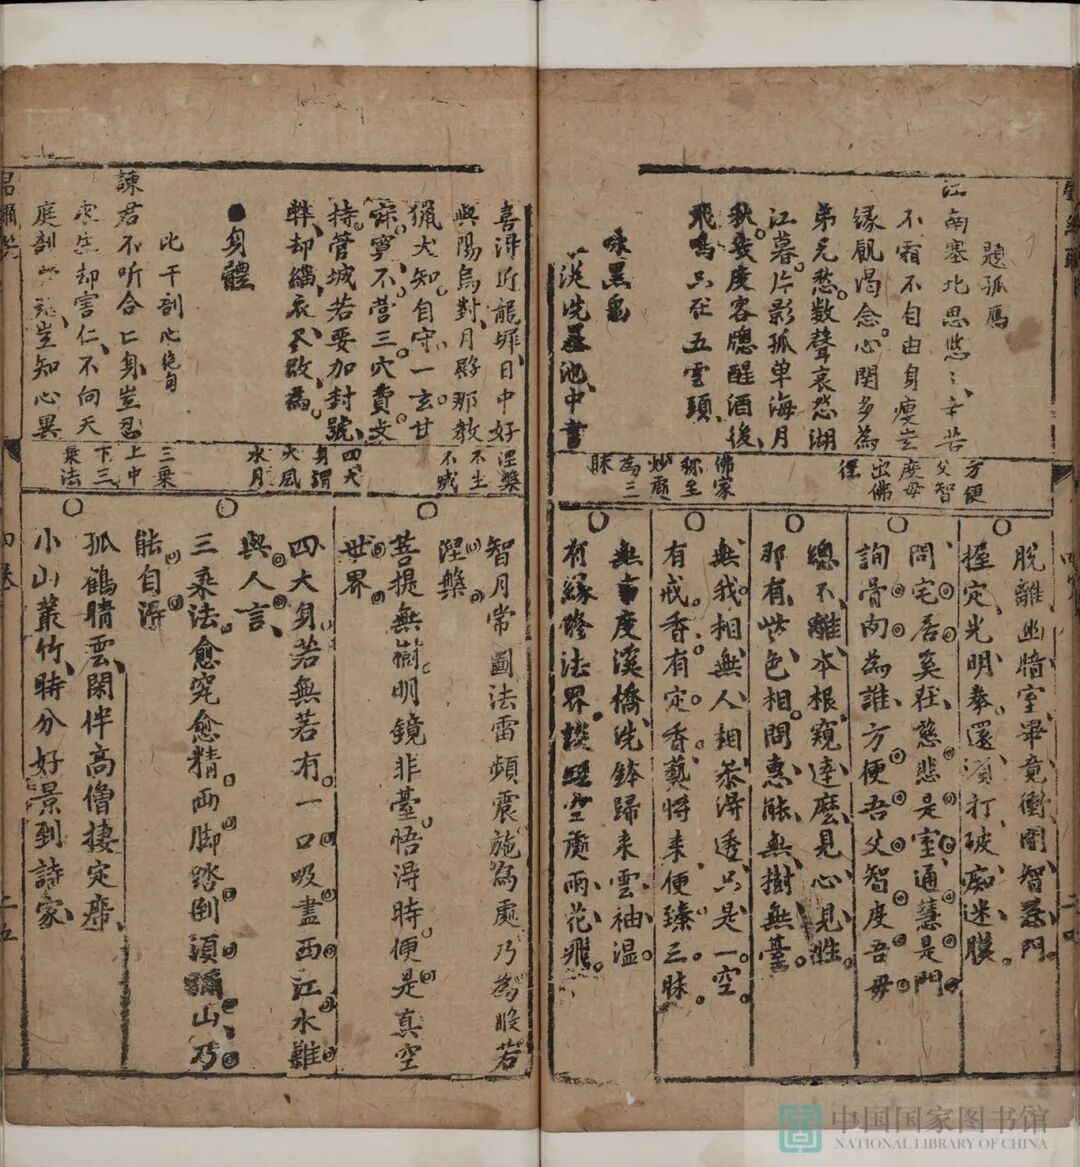 題孤鳫
江南塞北思悠〻辛苦
不霜不自由身瘦豈
緣飢渴念心閒多為
弟兄愁数聲哀怨湖
江暮片影孤单海月
秋幾度客牕醒酒後
飛鳴只在五雲頭
咏黑兎
洗墨池中書
方便
父智
度毋
出佛
經
佛家
称至
妙處
為三
昧
脱離幽暗室畢竟衝開智慧門
握定光明拳還須打破痴迷膜
問宅居奚在慈悲是室通慧是門
詢骨肉為誰方便吾父智度吾毋
總不離本根窺達麽見心見性
那有些色相問惠能無樹無臺
無我相無人相叅淂透只是一空
有戒香有定香爇将来便臻三昧
無事度溪橋洗鉢歸来雲袖温
有緣修法界談空處雨花飛
喜淂近龍墀日中好
與陽烏對月殿那教
獵犬知自守一玄甘
寂寧不营三穴費文
持管城若要加封號
斃却緇衣不改為
●身體
比干剖心絶句
諫君不听合亡身豈忍
求生却害仁不向天
庭剖豈知心異
涅槃
不生
不滅
四大
身謂
火風
水月
三乘
上中
下三
乘法
智月常圓法雷頻震施為處乃為般若
涅槃
菩提無樹明鏡非臺悟淂時便是真空
世界
四大身若無若有一口吸盡西江水難
與人言
三乘法愈究愈精両脚踏倒湏彌山乃
能自淂
孤鶴晴雲閑伴高僧棲定
小山叢竹時分好景到詩家
四卷
二十五
中国国家图书馆
NATIONAL LIBRARY OF CHINA